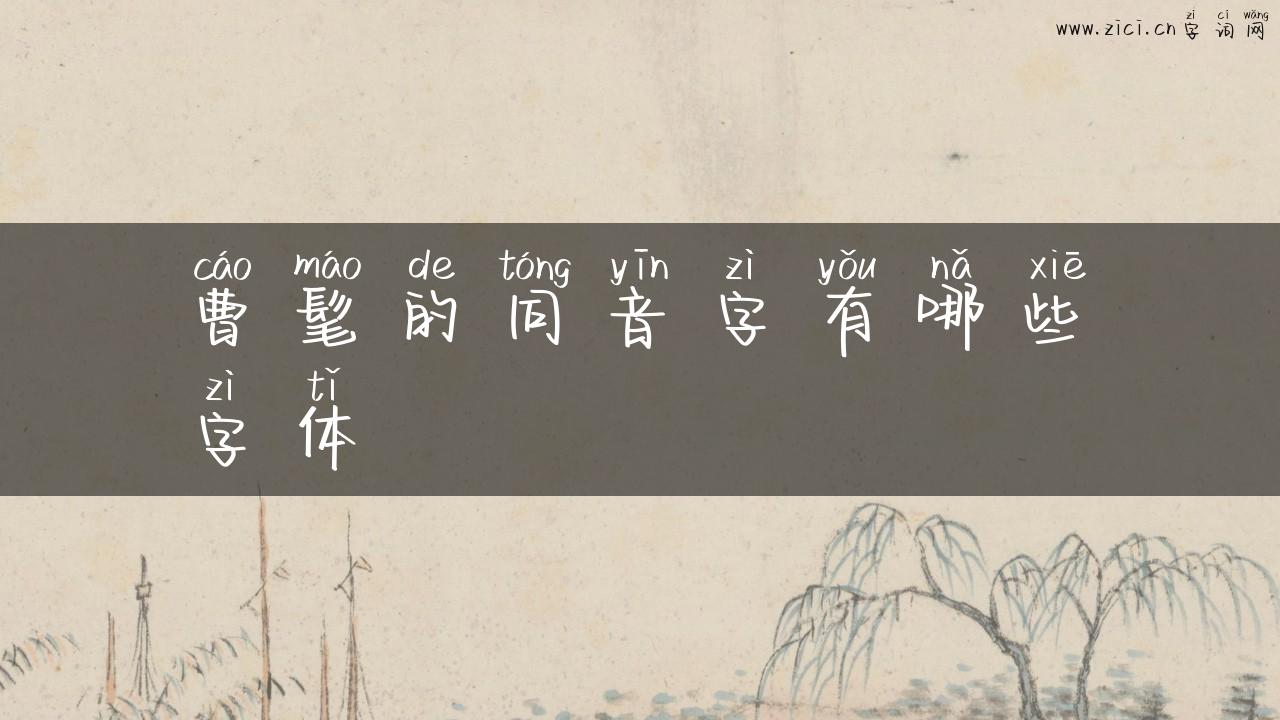 zì cí wǎng
www.zici.cn 字词网
cáo máo de tóng yīn zì yǒu nǎ xiē
曹髦的同音字有哪些
zì tǐ
字体